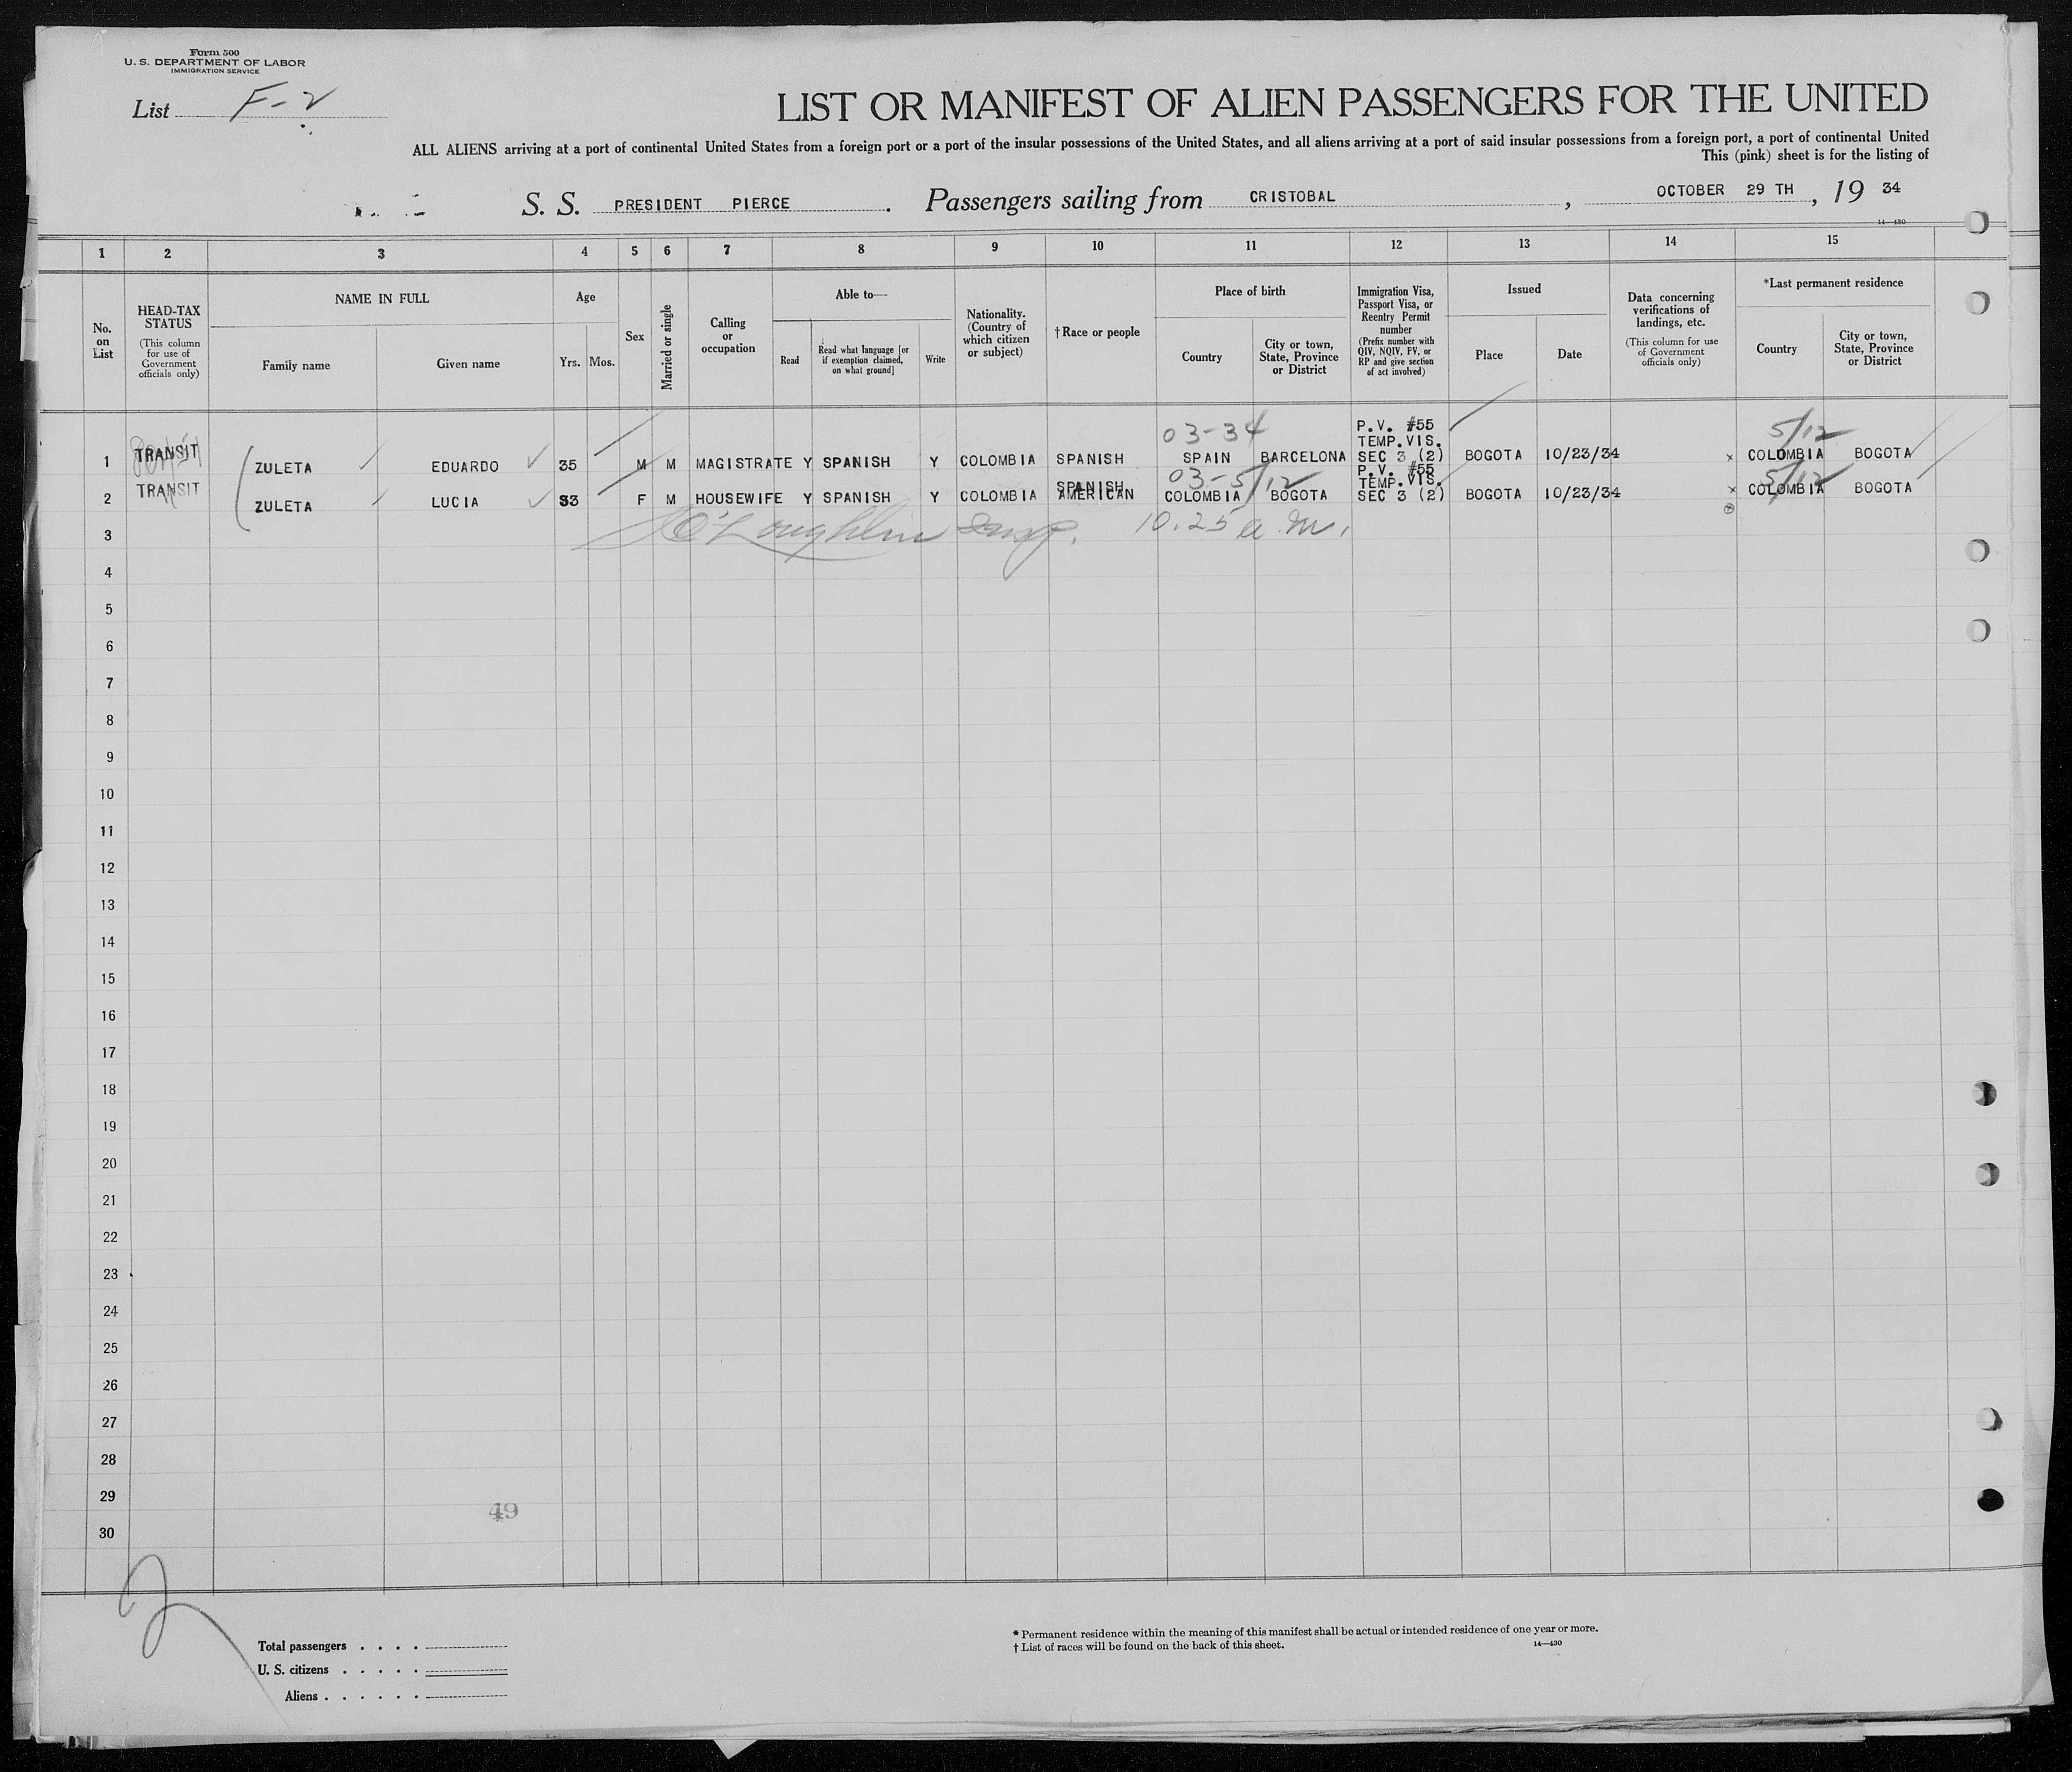 Form 500
U. S. DEPARTMENT OF LABOR
IMMIGRATION SERVICE
List F-2
LIST OR MANIFEST OF ALIEN PASSENGERS FOR THE UNITED
ALL ALIENS arriving at a port of continental United States from a foreign port or a port of the insular possessions of the United States, and all aliens arriving at a port of said insular possessions from a foreign port, a port of continental United
This (pink) sheet is for the listing of
S. S. PRESIDENT PIERCE. Passengers sailing from CRISTOBAL, OCTOBER 29 TH, 19 34
14—430
1 2 3 4 5 6 7 8 9 10 11 12 13 14 15
No. on List
HEAD-TAX STATUS
(This column for use of Government officials only)
NAME IN FULL
Family name
Given name
Age
Yrs. Mos.
Sex
Married or single
Calling or occupation
Able to—
Read
Read what language [or if exemption claimed, on what ground]
Write
Nationality. (Country of which citizen or subject)
†Race or people
Place of birth
Country
City or town, State, Province or District
Immigration Visa, Passport Visa, or Reentry Permit number
(Prefix number with QIV, NQIV, PV, or RP and give section of act involved)
Issued
Place
Date
Data concerning verifications of landings, etc.
(This column for use of Government officials only)
*Last permanent residence
Country
City or town, State, Province or District
03-34 P.V. #55 5/12
TEMP.VIS.
1 TRANSIT ZULETA EDUARDO 35 M M MAGISTRATE Y SPANISH Y COLOMBIA SPANISH SPAIN BARCELONA SEC 3 (2) BOGOTA 10/23/34 x COLOMBIA BOGOTA
03-5/12 P.V. #55 5/12
SPANISH TEMP.VIS.
2 TRANSIT ZULETA LUCIA 33 F M HOUSEWIFE Y SPANISH Y COLOMBIA AMERICAN COLOMBIA BOGOTA SEC 3 (2) BOGOTA 10/23/34 x COLOMBIA BOGOTA
3 O'Loughlin Insp. 10.25 a.m.
4
5
6
7
8
9
10
11
12
13
14
15
16
17
18
19
20
21
22
23
24
25
26
27
28
29
49
30
2
Total passengers . . . .
U. S. citizens . . . . .
Aliens . . . . . .
* Permanent residence within the meaning of this manifest shall be actual or intended residence of one year or more.
† List of races will be found on the back of this sheet. 14—430